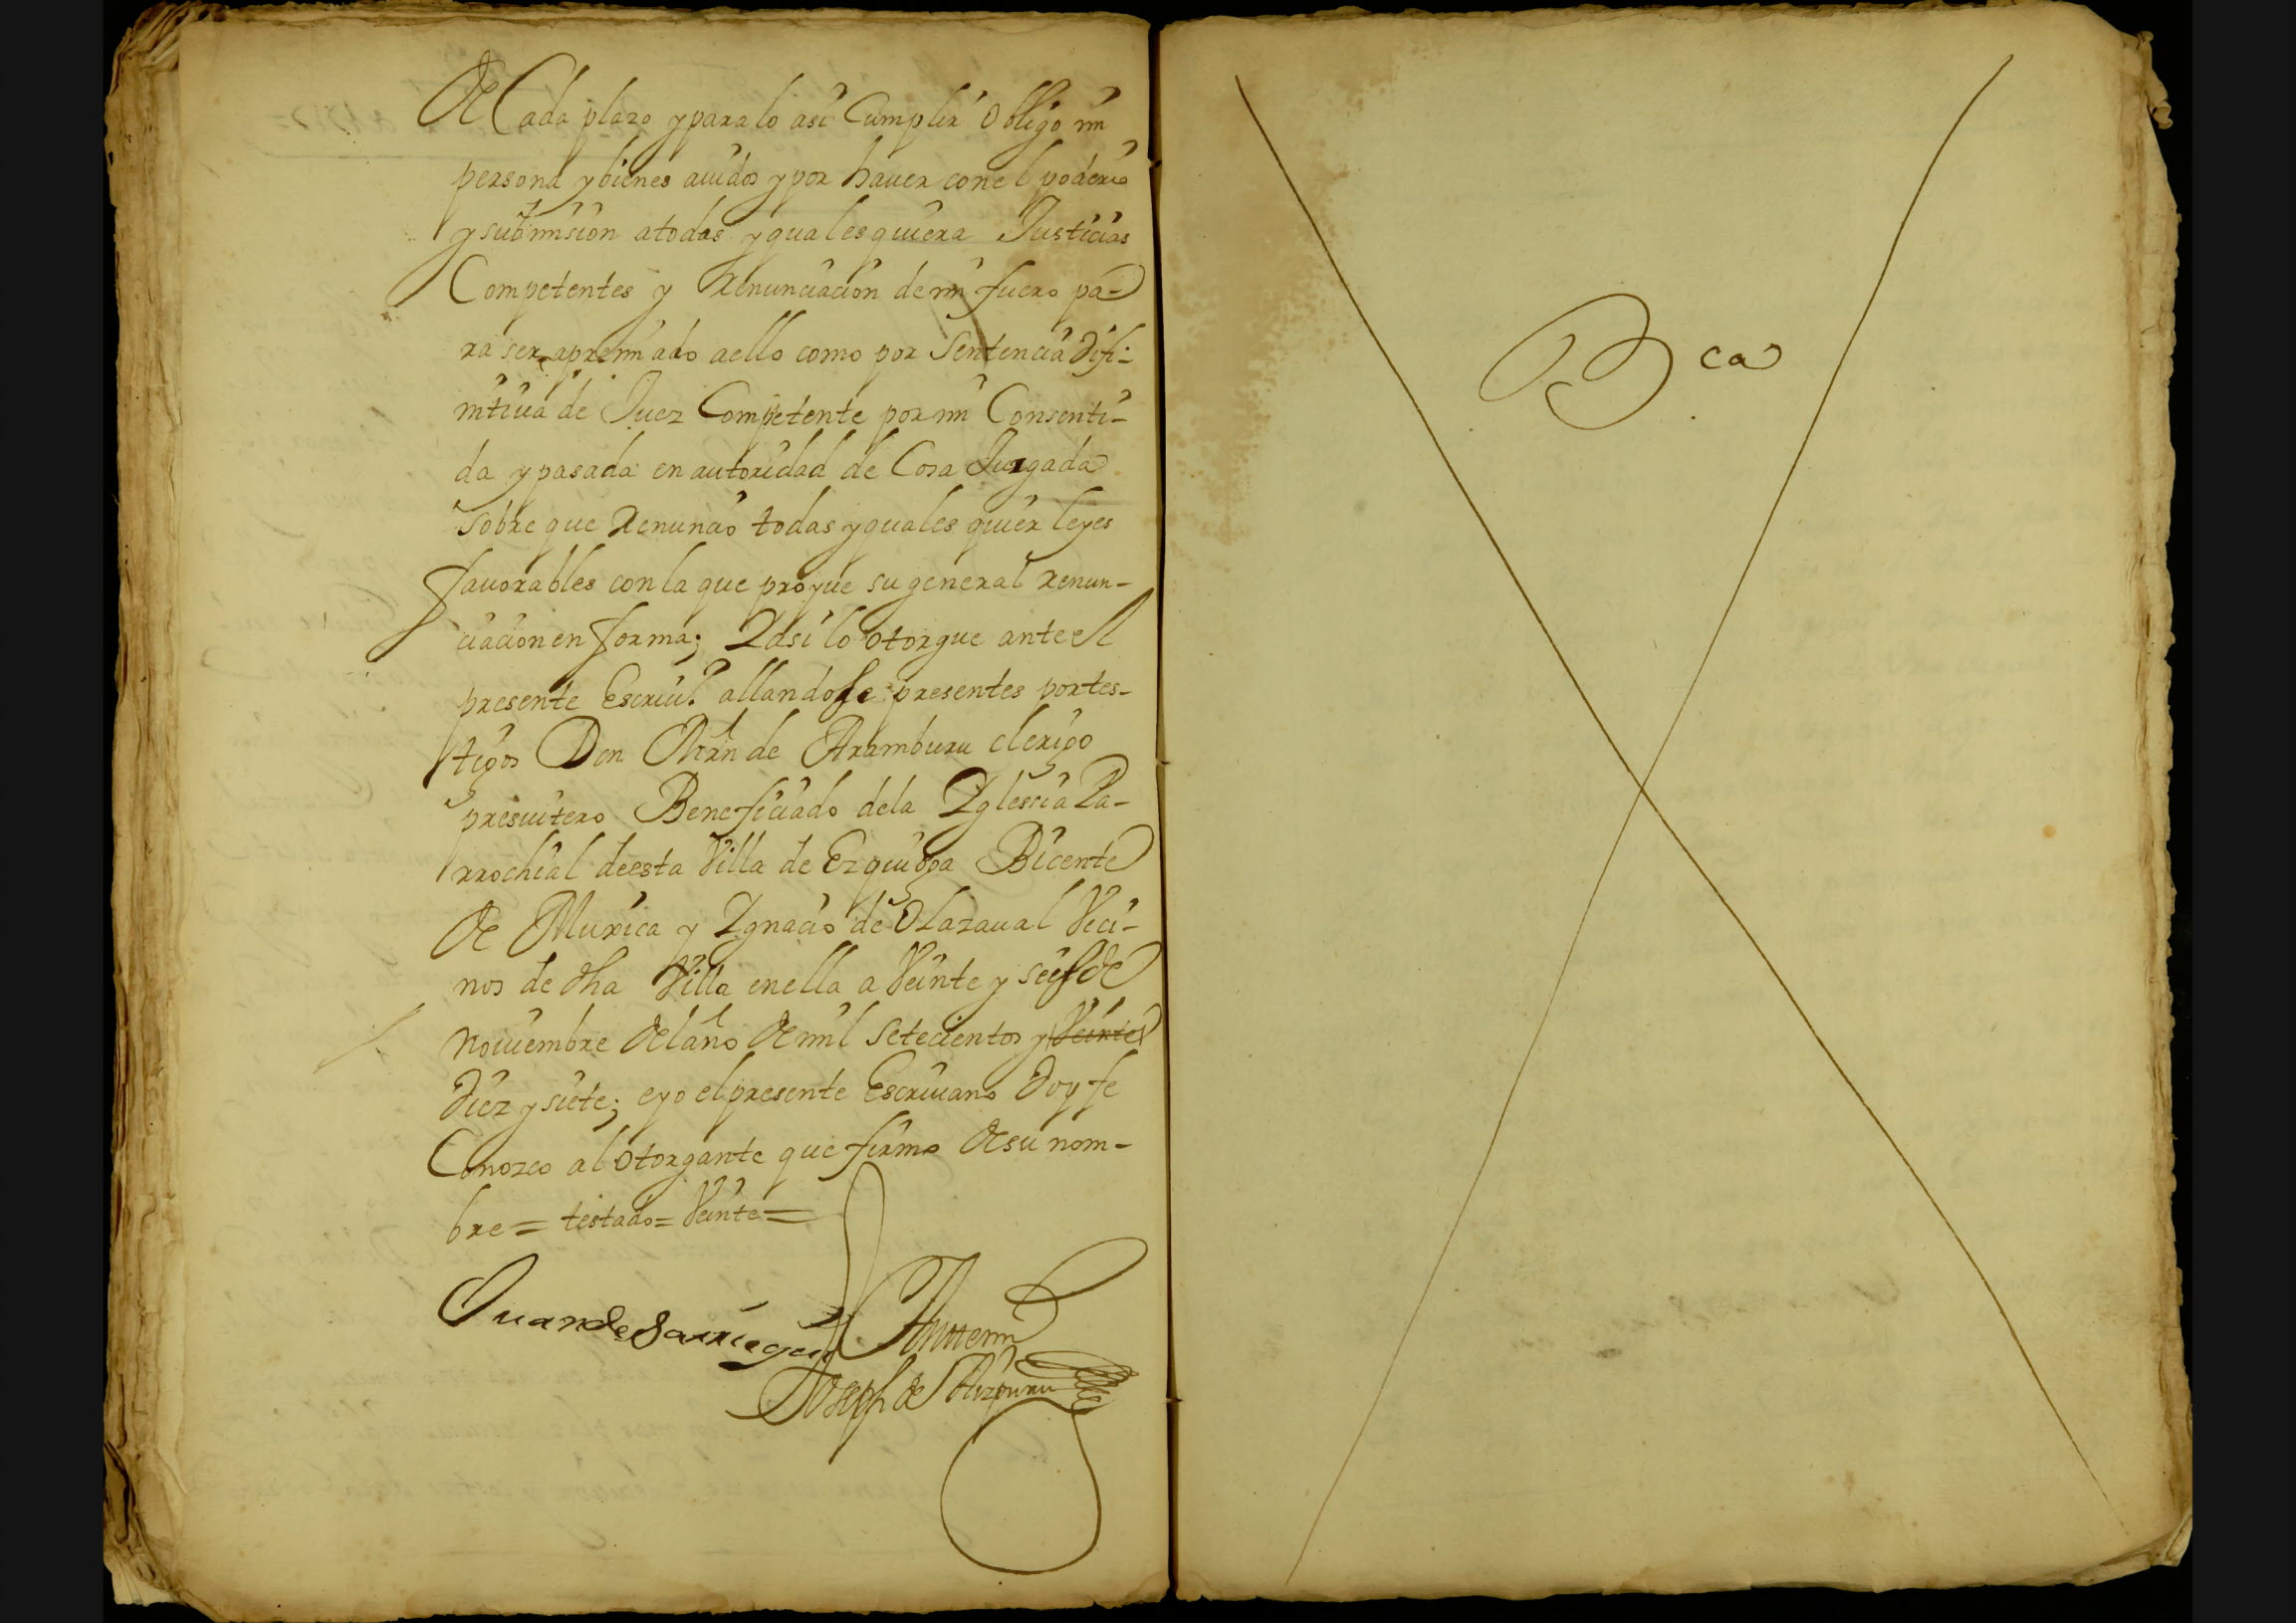 de Cada plazo y para lo asi Cumplir obligo mi
persona y bienes auidos y por hauer con el poderio
y submision a todas y quales quiera Justicias
Competentes y Renunciacion de mi fuero pa-
ra ser apremiado a ello como por Sentencia difi-
nitiua de Juez Competente por mi Consenti-
da y pasada en autoridad de Cosa Juzgada
sobre que Renuncio todas y quales quier leyes
fauorables con la que proyue su general renun-
ciacion en forma; Y asi lo otorgue ante el
presente Escriu.º allandose presentes por tes-
tigos Don Mrn de Aramburu clerigo
presuitero Beneficiado de la Yglessia Pa-
rrochial de esta Villa de Ezquioga Bicente
de Muxica y Ygnacio de Olazaual Veci-
nos de dha Villa en ella a Veinte y seis de
Nouiembre del año de mil setecientos y Veinte
diez y siete; e yo el presente Escriuano doy fe
Conozco al otorgante que firmo de su nom-
bre = testado = Veinte =
Juan de Sarriegui
Antemi
Joseph de Aizpuru
B ca